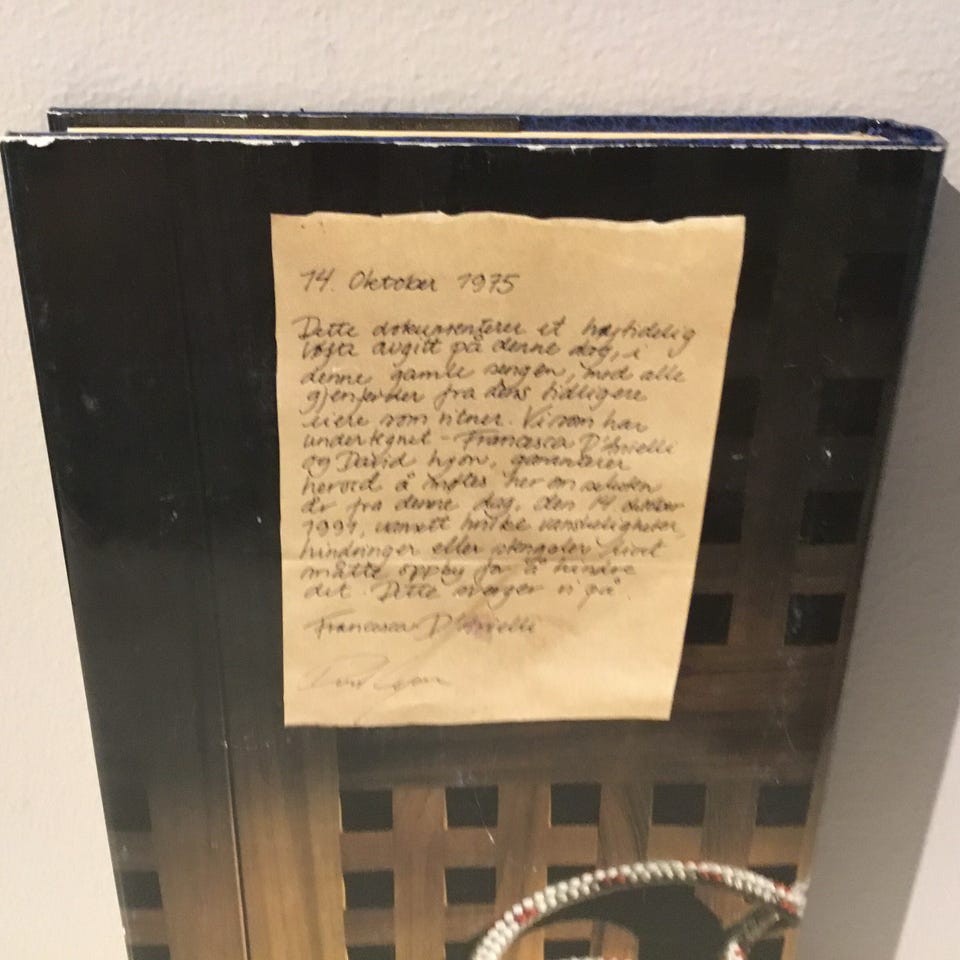 14. Oktober 1975
Dette dokumenterer et høytidelig
løfte avgitt på denne dag, i
denne gamle sengen, med alle
gjenferder fra dens tidligere
eiere som vitner. Vi som har
undertegnet - Francesca D'Arielli
og David Lyon, garanterer
herved å møtes her om seksten
år fra denne dag, den 14 oktober
1991, uansett hvilke vanskeligheter,
hindringer eller stengsler livet
måtte oppby for å hindre
det. Dette sverger vi på.
Francesca D'Arielli